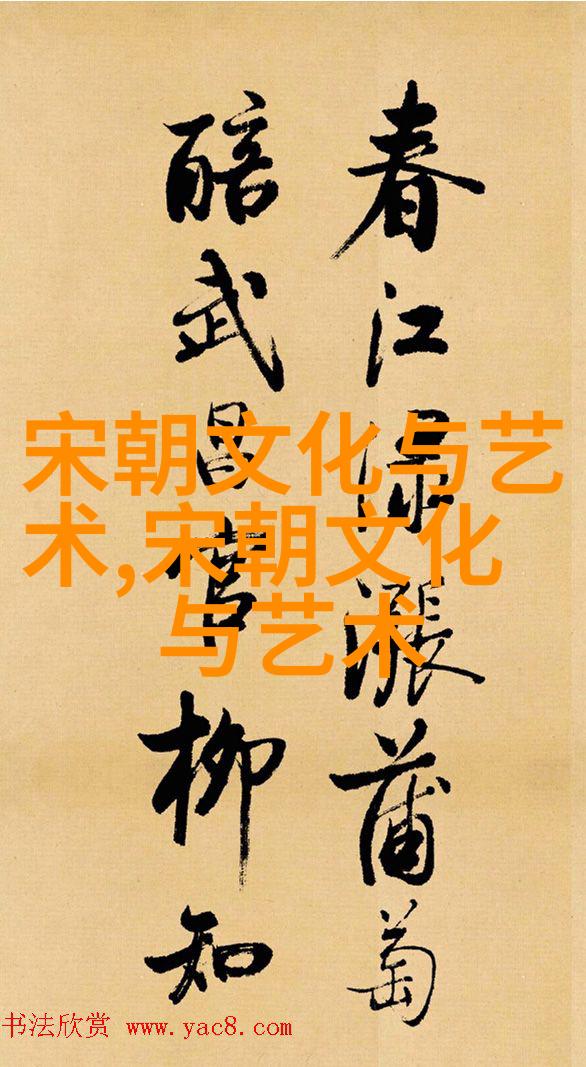 春江渌涨蒲萄
醅武昌官柳知
宋朝文化与艺
术,宋朝文化
与艺术
书法欣赏 www.yac8.com